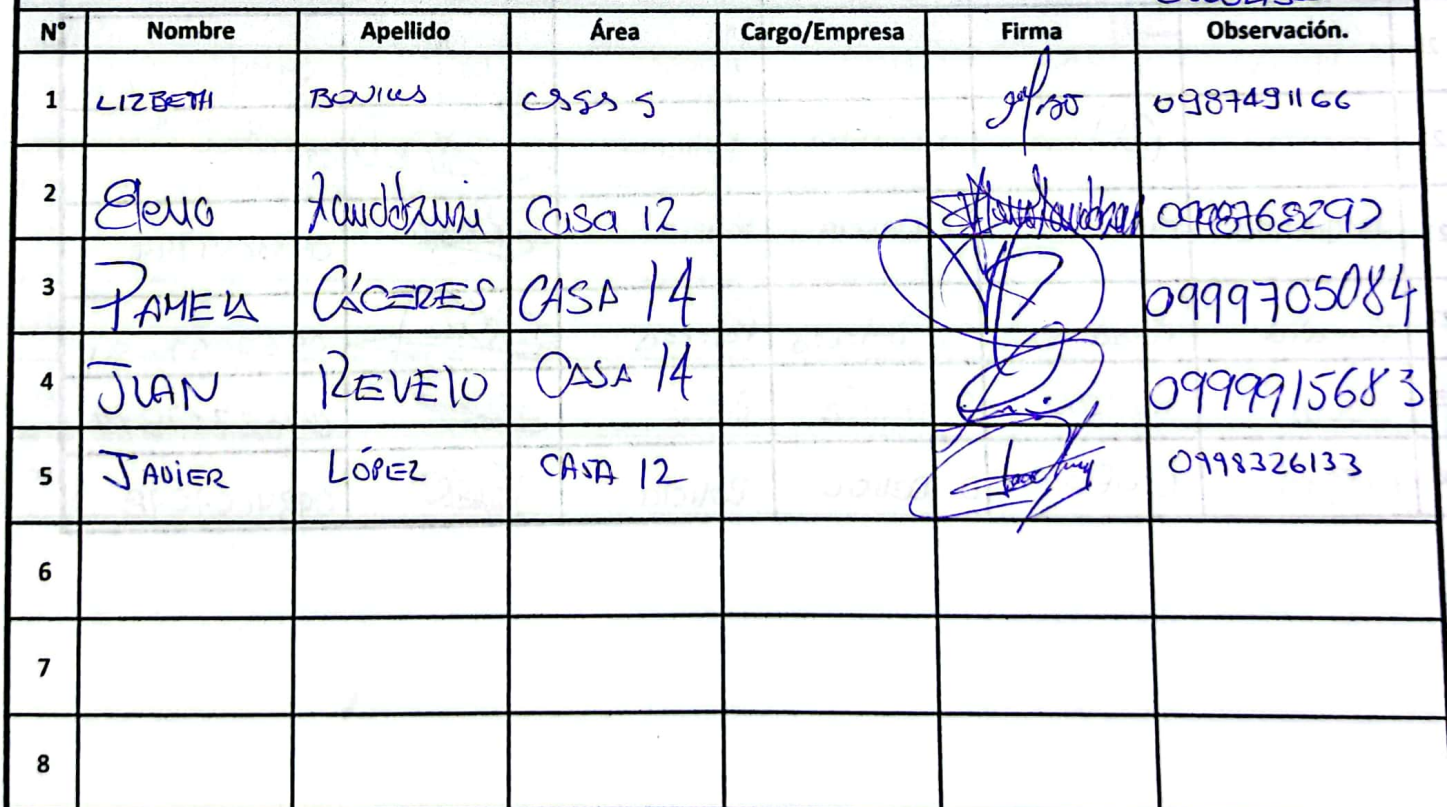 N° Nombre Apellido Área Cargo/Empresa Firma Observación.
1 LIZBETH casa 5 0987491166
2 Elena Landázuri Casa 12
3 PAMELA CÁCERES CASA 14 0999705084
4 JUAN REVELO CASA 14 0999915683
5 JAVIER LÓPEZ CASA 12 0998326133
6
7
8